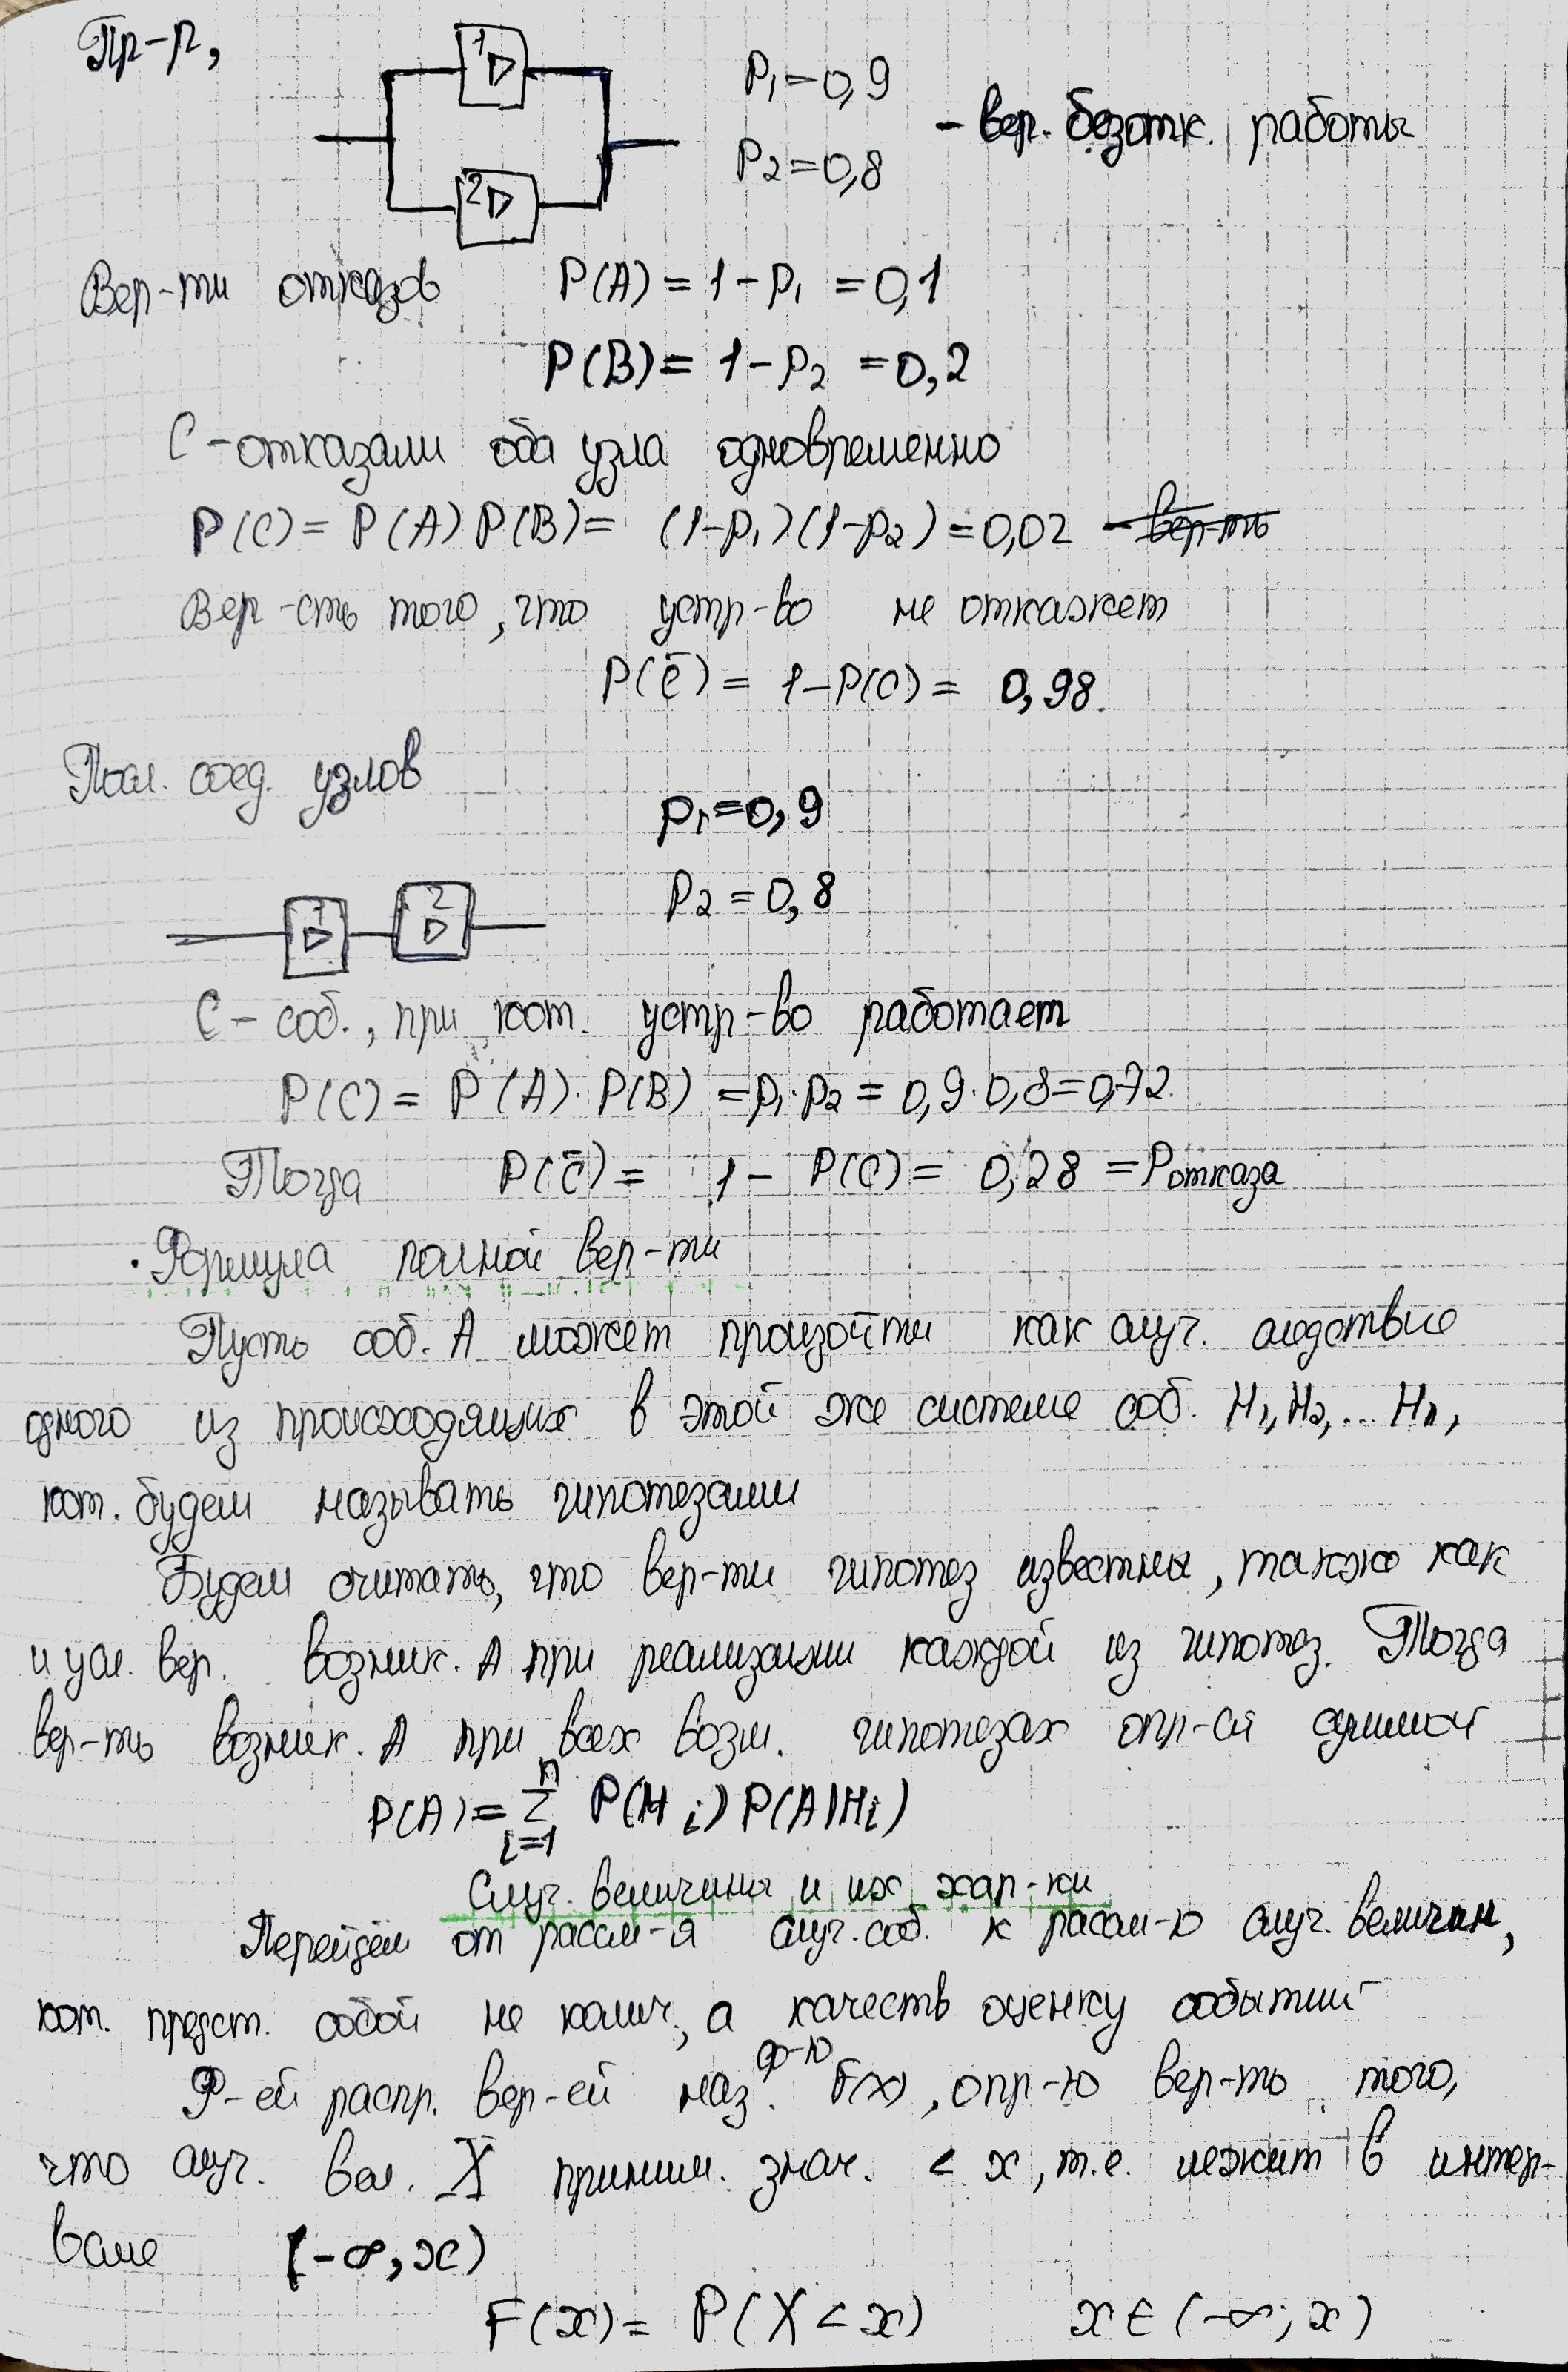 Пр-р,
1
2
P₁=0,9
P₂=0,8
- вер. безотк. работы
Вер-ти отказов P(A) = 1-p₁ = 0,1
P(B) = 1-p₂ = 0,2
C-отказали оба узла одновременно
P(C) = P(A) P(B) = (1-p₁)(1-p₂) = 0,02 - вер-ть
Вер-сть того, что устр-во не откажет
P(C̄) = 1-P(C) = 0,98.
Посл. соед. узлов
p₁=0,9
p₂=0,8
1 2
C - соб., при кот. устр-во работает
P(C) = P(A)·P(B) = p₁·p₂ = 0,9·0,8=0,72.
Тогда P(C̄) = 1 - P(C) = 0,28 = Pотказа
· Формула полной вер-ти
Пусть соб. A может произойти как случ. следствие
одного из происходящих в этой же системе соб. H₁, H₂, ... Hₙ,
кот. будем называть гипотезами
Будем считать, что вер-ти гипотез известны, также как
и усл. вер. возник. A при реализации каждой из гипотез. Тогда
вер-ть возник. A при всех возм. гипотезах опр-ся суммой
P(A) = n Σ i=1 P(Hᵢ) P(A|Hᵢ)
Случ. величины и их хар-ки
Перейдём от рассм-я случ. соб. к рассм-ю случ. величин,
кот. предст. собой не колич., а качеств оценку событий
Ф-ей распр. вер-ей наз. ф-ю F(x), опр-ю вер-ть того,
что случ. вел. X приним. знач. < x, т.е. лежит в интер-
вале (-∞, x)
F(x) = P(X < x) x ∈ (-∞; x)